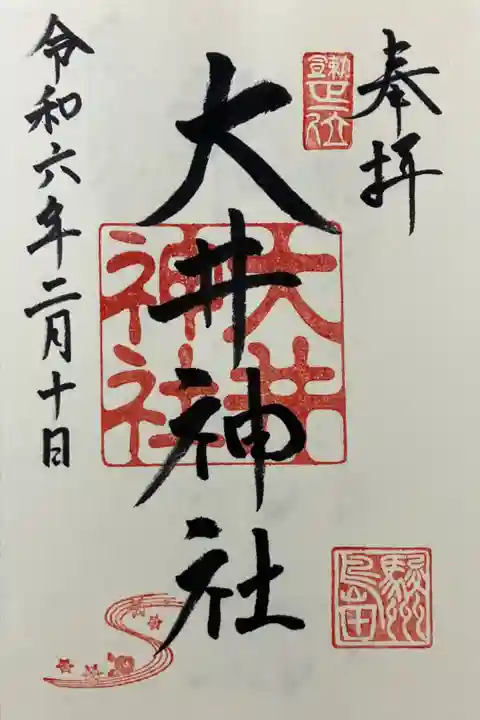 奉拝
大井神社
大井
神社
駿州
島田
令和六年二月十日